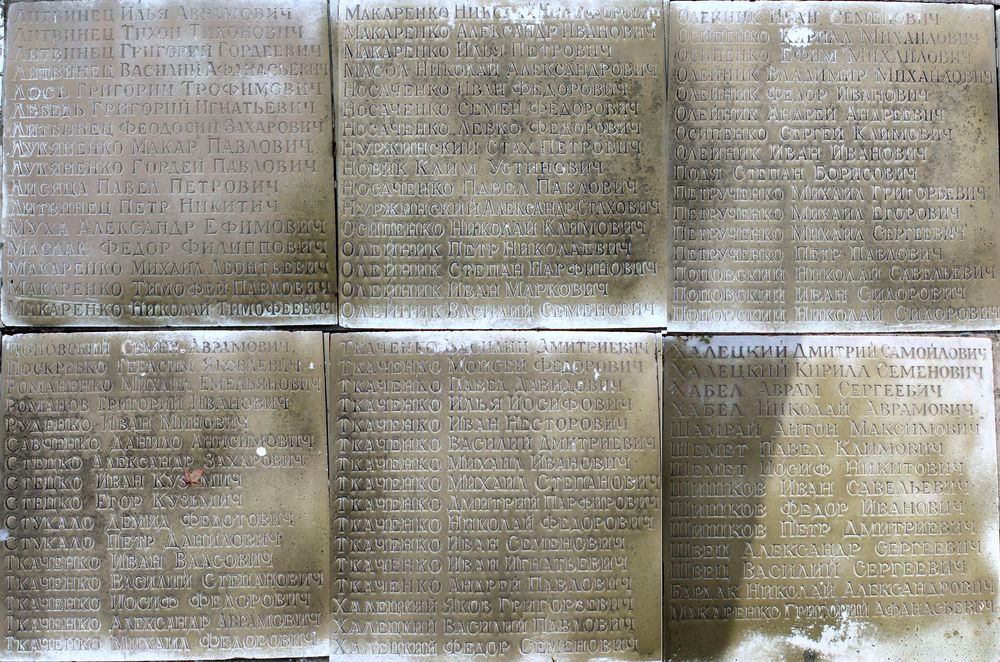 Литвинец Илья Аврамович
Литвинец Тихон Тихонович
Литвинец Григорий Гордеевич
Литвинец Василий Афанасьевич
Лось Григорий Трофимович
Лебедь Григорий Игнатьевич
Литвинец Феодосий Захарович
Лукяненко Макар Павлович
Лукяненко Гордей Павлович
Лисица Павел Петрович
Литвинец Петр Никитич
Муха Александр Ефимович
Масалк Федор Филиппович
Макаренко Михаил Леонтьевич
Макаренко Тимофей Павлович
Макаренко Николай Тимофеевич
Макаренко
Макаренко Александр Иванович
Макаренко Илья Петрович
Масол Николай Александрович
Носаченко Иван Федорович
Носаченко Семен Федорович
Носаченко Левко Федорович
Нуржинский Стах Петрович
Новик Клим Устинович
Носаченко Павел Павлович
Нуржинский Александр Стахович
Осипенко Николай Климович
Олейник Петр Николаевич
Олейник Степан Парфинович
Олейник Иван Маркович
Олейник Василий Семенович
Олейник Иван Семенович
Осипенко Кирилл Михайлович
Осипенко Ефим Михайлович
Олейник Владимир Михайлович
Олейник Федор Иванович
Олейник Андрей Андреевич
Осипенко Сергей Климович
Олейник Иван Иванович
Подя Степан Борисович
Петрученко Михаил Григорьевич
Петрученко Михаил Егорович
Петрученко Михаил Сергеевич
Петрученко Петр Павлович
Поповский Николай Савельевич
Поповский Иван Сидорович
Поповский Николай Сидорович
Поповский Семен Аврамович
Поскребко Герасим Яковлевич
Романенко Михаил Емельянович
Романов Григорий Иванович
Руденко Иван Минович
Савченко Данило Анисимович
Стецко Александр Захарович
Стецко Иван Кузьмич
Стецко Егор Кузьмич
Стукало Демид Федотович
Стукало Петр Данилович
Ткаченко Иван Власович
Ткаченко Василий Степанович
Ткаченко Иосиф Федорович
Ткаченко Александр Аврамович
Ткаченко Михаил Федорович
Ткаченко Василий Дмитриевич
Ткаченко Моисей Федорович
Ткаченко Павел Давидович
Ткаченко Илья Иосифович
Ткаченко Иван Несторович
Ткаченко Василий Дмитриевич
Ткаченко Михаил Иванович
Ткаченко Михаил Степанович
Ткаченко Дмитрий Парфирович
Ткаченко Николай Федорович
Ткаченко Иван Семенович
Ткаченко Иван Игнатьевич
Ткаченко Андрей Павлович
Халецкий Яков Григоревич
Халецкий Василий Павлович
Халецкий Федор Семенович
Халецкий Дмитрий Самойлович
Халецкий Кирилл Семенович
Хабел Аврам Сергеевич
Хабел Николай Аврамович
Шамрай Антон Максимович
Шемет Павел Климович
Шемет Иосиф Никитович
Шишков Иван Савельевич
Шишков Федор Иванович
Шишков Петр Дмитриевич
Швец Александр Сергеевич
Швец Василий Сергеевич
Бардак Николай Александрович
Макаренко Григорий Афанасьевич